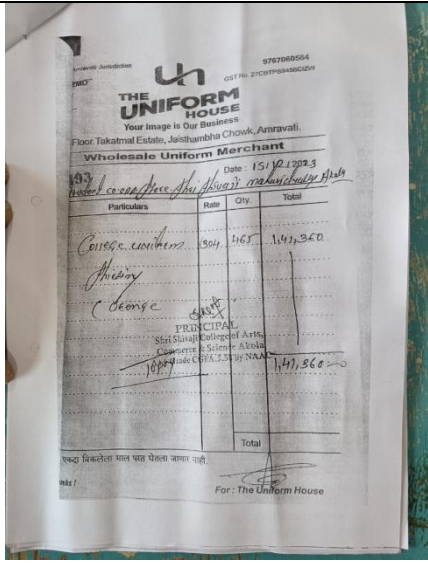 Amravati Jurisdiction
9767060554
MEMO
Un
GST No. 27CBTPS9456C1ZW
THE
UNIFORM
HOUSE
Your Image is Our Business
Floor, Takatmal Estate, Jaisthambha Chowk, Amravati.
Wholesale Uniform Merchant
493
Date : 15/12/2023
Student co-opp store Shri Shivaji mahavidyalya Akola
Particulars Rate Qty. Total
College uniform 304 465 1,41,360
PRINCIPAL
Shri Shivaji College of Arts,
Commerce & Science Akola
by NAAC
1,41,360
Total
एकदा विकलेला माल परत घेतला जाणार नाही.
For : The Uniform House